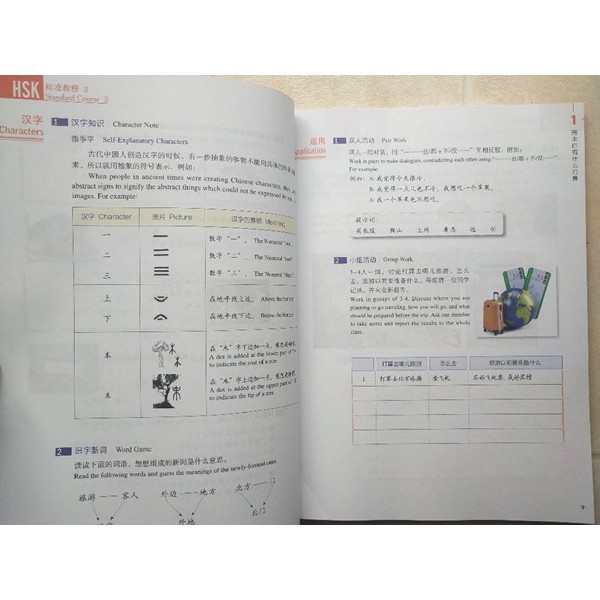 HSK 标准教程 3
Standard Course 3
汉字
Characters
1 汉字知识 Character Note
指事字 Self-Explanatory Characters
古代中国人创造汉字的时候,有一些抽象的事物不能用具体的
来,所以就用抽象的符号表示,例如:
When people in ancient times were creating Chinese characters, they
abstract signs to signify the abstract things which could not be expressed by
images. For example:
汉字 Character 图片 Picture 汉字的意思 Meaning
一 数字“一”。The Numeral "one"
二 数字“二”。The Numeral "two"
三 数字“三”。The Numeral "three"
上 在地平线上边。Above the horizon
下 在地平线下边。Below the horizon
本 在“木”字下边加一点,
A dot is added at the lower part of
to indicate the root of a tree.
末 在“木”字上边加一点,
A dot is added at the upper part of
to indicate the tip of a tree.
2 旧字新词 Word Game
读读下面的词语,想想组成的新词是什么意思。
Read the following words and guess the meanings of the newly-formed ones.
旅游 客人 外边 地方 北方 门
外地 北门
运用
Application
1 双人活动 Pair Work
两人一组对话,用“……也/都+不/没……”互相反驳,例如:
Work in pairs to make dialogues, contradicting each other using "……也/都+不/没……"
For example:
例如:A: 我觉得今天很冷。
B: 我觉得一点儿也不冷。我想吃一个苹果。
A: 我一个苹果也不想吃。
提示词:
买衣服 爬山 上网 看书 远 忙
2 小组活动 Group Work
3-4人一组,讨论打算去哪儿旅游,怎么
去,旅游以前要准备什么。每组请一位同学
记录,并向全班报告。
Work in groups of 3-4. Discuss where you are
planning to go traveling, how you will go, and what
should be prepared before the trip. Ask one member
to take notes and report the results to the whole
class.
打算去哪儿旅游 怎么去 旅游以前要准备什么
1 打算去北京旅游 坐飞机 买好飞机票、找好宾馆
1
周末你有什么打算
9